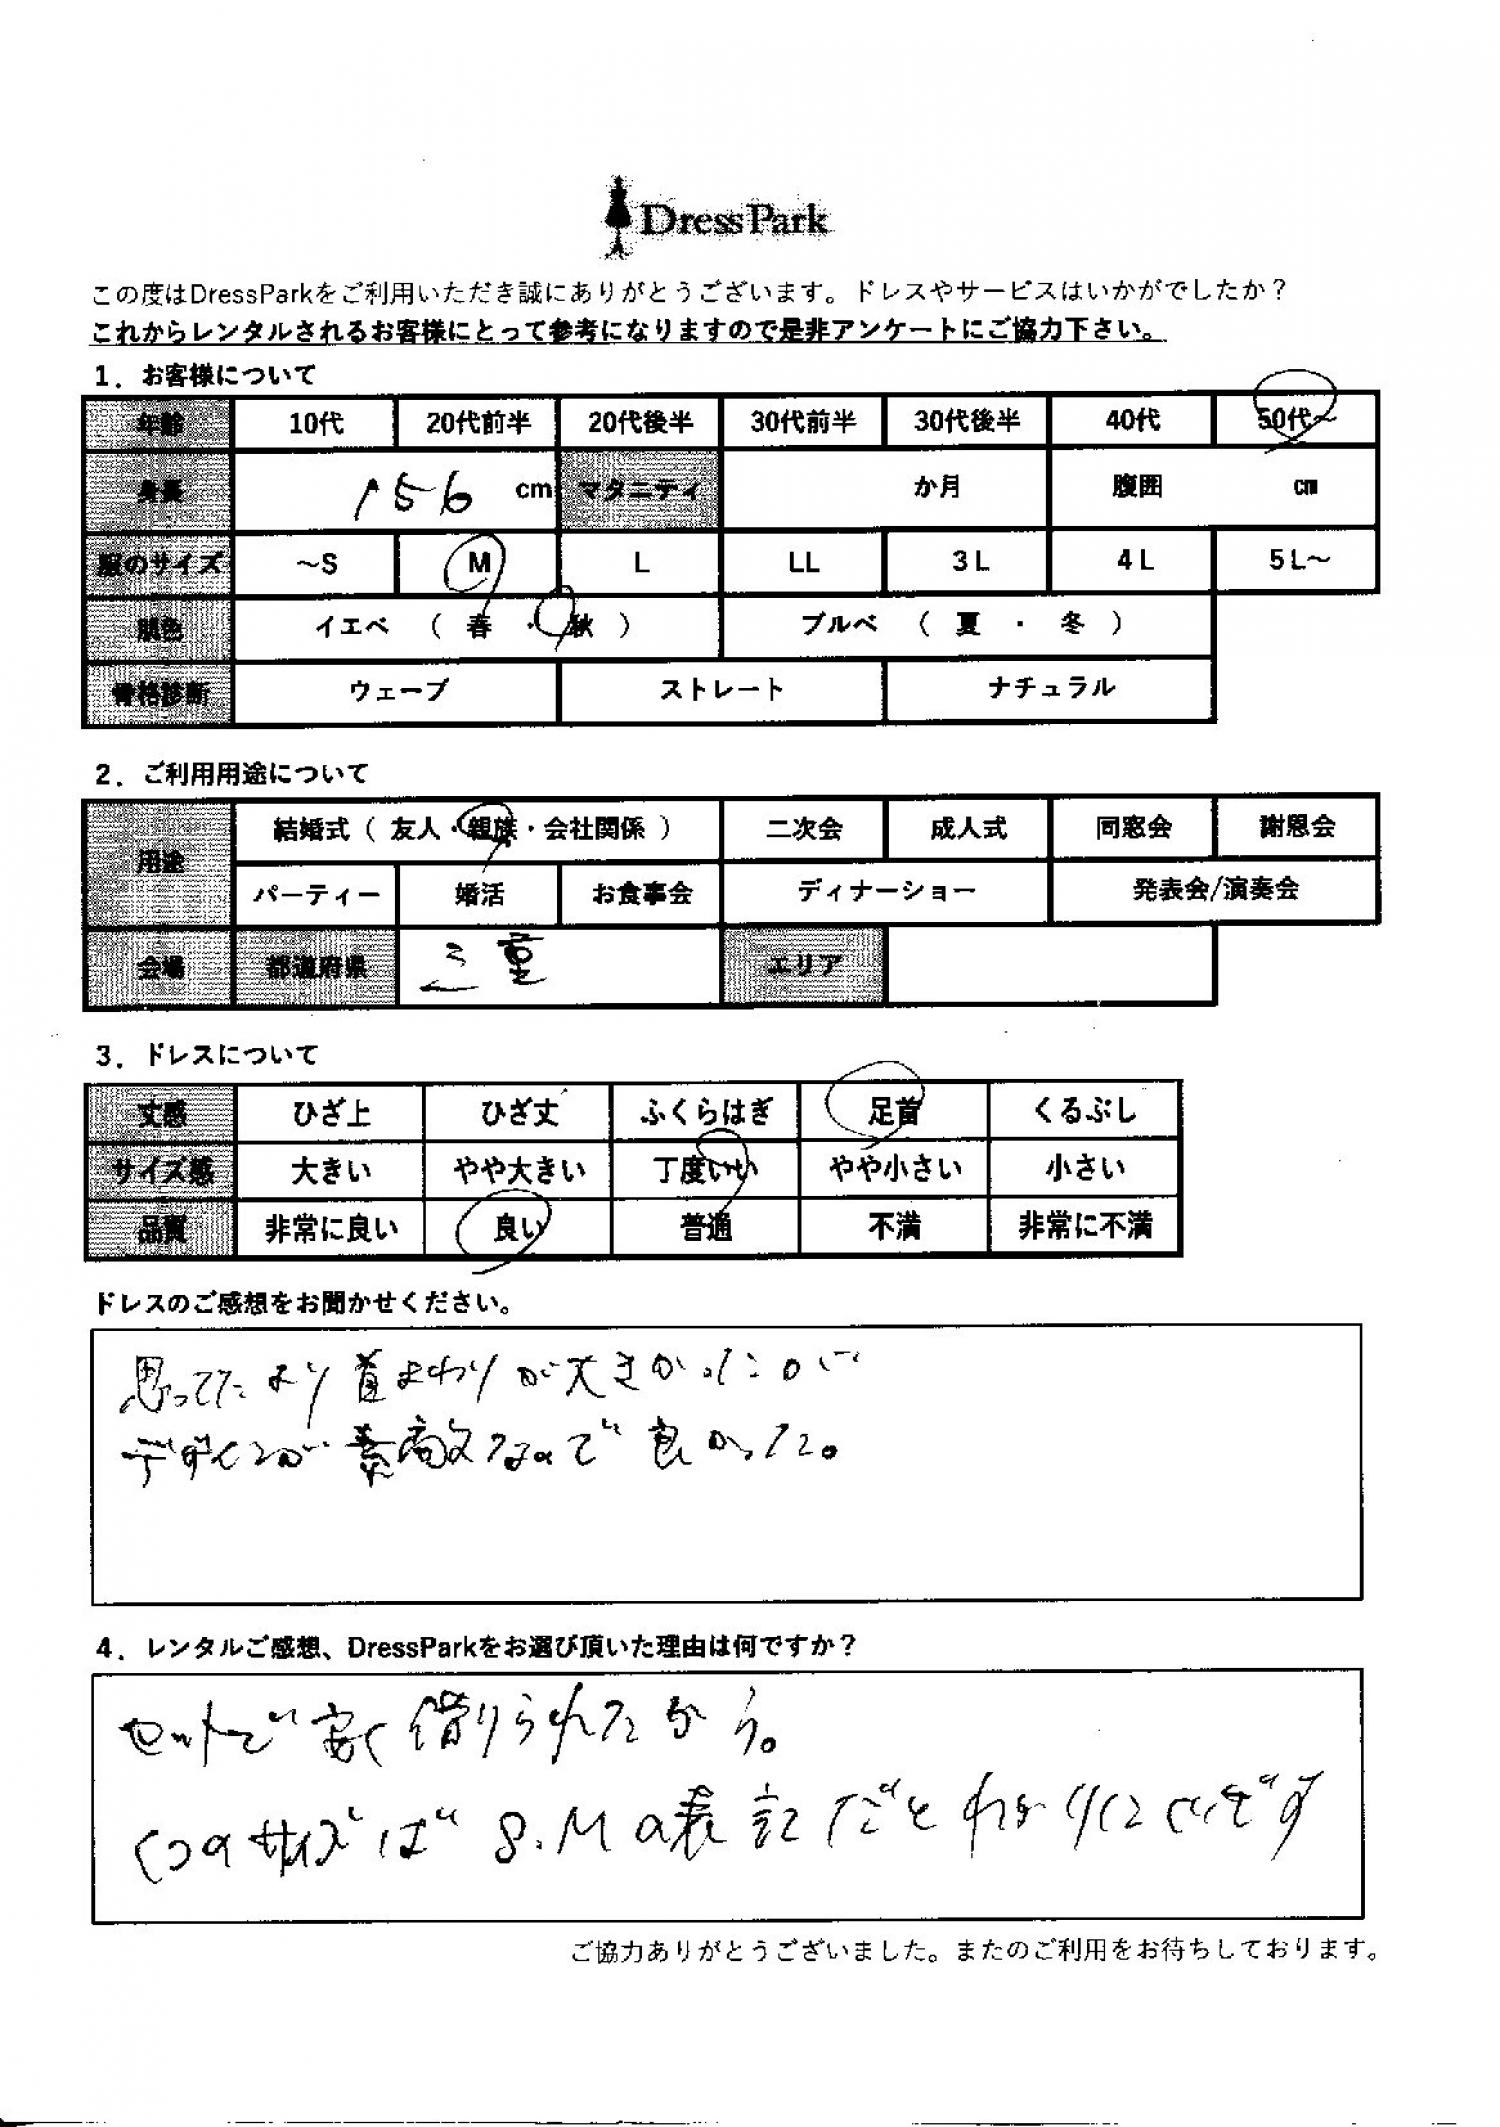 DressPark
この度はDressParkをご利用いただき誠にありがとうございます。ドレスやサービスはいかがでしたか？
これからレンタルされるお客様にとって参考になりますので是非アンケートにご協力下さい。
1．お客様について
年齢 10代 20代前半 20代後半 30代前半 30代後半 40代 50代～
身長 156 cm マタニティ か月 腹囲 cm
服のサイズ ～S M L LL 3L 4L 5L～
肌色 イエベ （ 春 ・ 秋 ） ブルベ （ 夏 ・ 冬 ）
骨格診断 ウェーブ ストレート ナチュラル
2．ご利用用途について
用途 結婚式（ 友人・親族・会社関係 ） 二次会 成人式 同窓会 謝恩会
パーティー 婚活 お食事会 ディナーショー 発表会/演奏会
会場 都道府県 三重 エリア
3．ドレスについて
丈感 ひざ上 ひざ丈 ふくらはぎ 足首 くるぶし
サイズ感 大きい やや大きい 丁度いい やや小さい 小さい
品質 非常に良い 良い 普通 不満 非常に不満
ドレスのご感想をお聞かせください。
思ってたより首まわりが大きかったが
デザインが素敵なので良かった。
4．レンタルご感想、DressParkをお選び頂いた理由は何ですか？
セットで安く借りられたから。
くつのサイズが S.Mの表記だとわかりにくいです
ご協力ありがとうございました。またのご利用をお待ちしております。